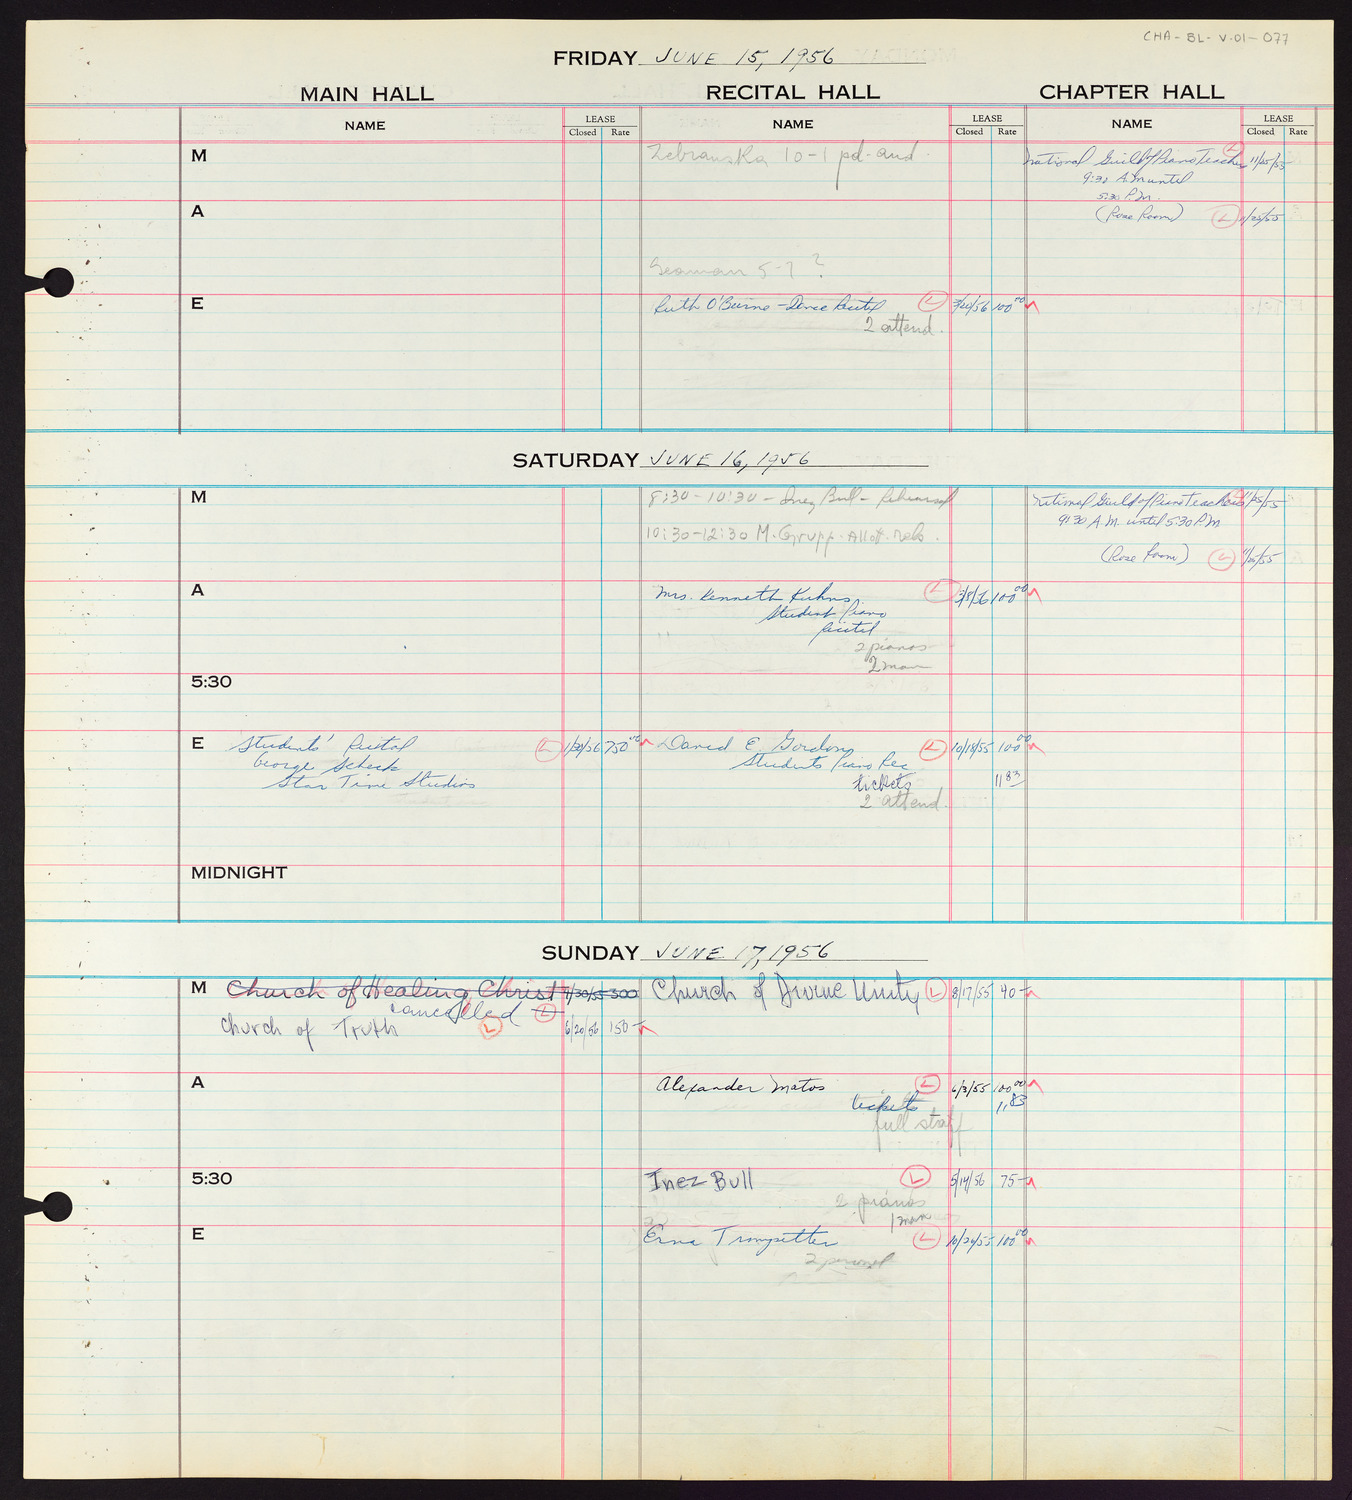 CHA-BL-V.01-077
FRIDAY JUNE 15, 1956
MAIN HALL
RECITAL HALL
CHAPTER HALL
NAME
LEASE
Closed Rate
NAME
LEASE
Closed Rate
NAME
LEASE
Closed Rate
M
Zebranska 10-1 pd. aud.
National Guild of Piano Teachers L 11/25/55
9:30 A.M until
5:30 P.M.
A
(Rose Room) L 11/25/55
Seaman 5-7 ?
E
Ruth O'Beirne - Dance Recital L 3/20/56 100 00
2 attend.
SATURDAY JUNE 16, 1956
M
8:30-10:30 - Inez Bull - Rehearsal
National Guild of Piano Teachers L 11/25/55
9:30 A.M. until 5:30 P.M
10:30-12:30 M. Grupp. Allot. reh.
(Rose Room) L 11/25/55
A
Mrs. Kenneth Kuhns, L 3/8/56 100 00
Student Piano
Recital
2 pianos
2 man
5:30
E
Students' Recital L 1/30/56 750 00
George Scheck
Star Time Studios
David E. Gordon L 10/18/55 100 00
Students Piano Rec
tickets 11 83
2 attend.
MIDNIGHT
SUNDAY JUNE 17, 1956
M
Church of Healing Christ 9/30/55 300
cancelled L
Church of Truth L 6/20/56 150 -
Church of Divine Unity L 8/17/55 90 -
A
Alexander Matos L 6/3/55 100 00
tickets 11.83
full staff
5:30
Inez Bull L 5/14/56 75 -
2 pianos
1 man
E
Erna Trompetter L 10/24/55 100 00
2 personel